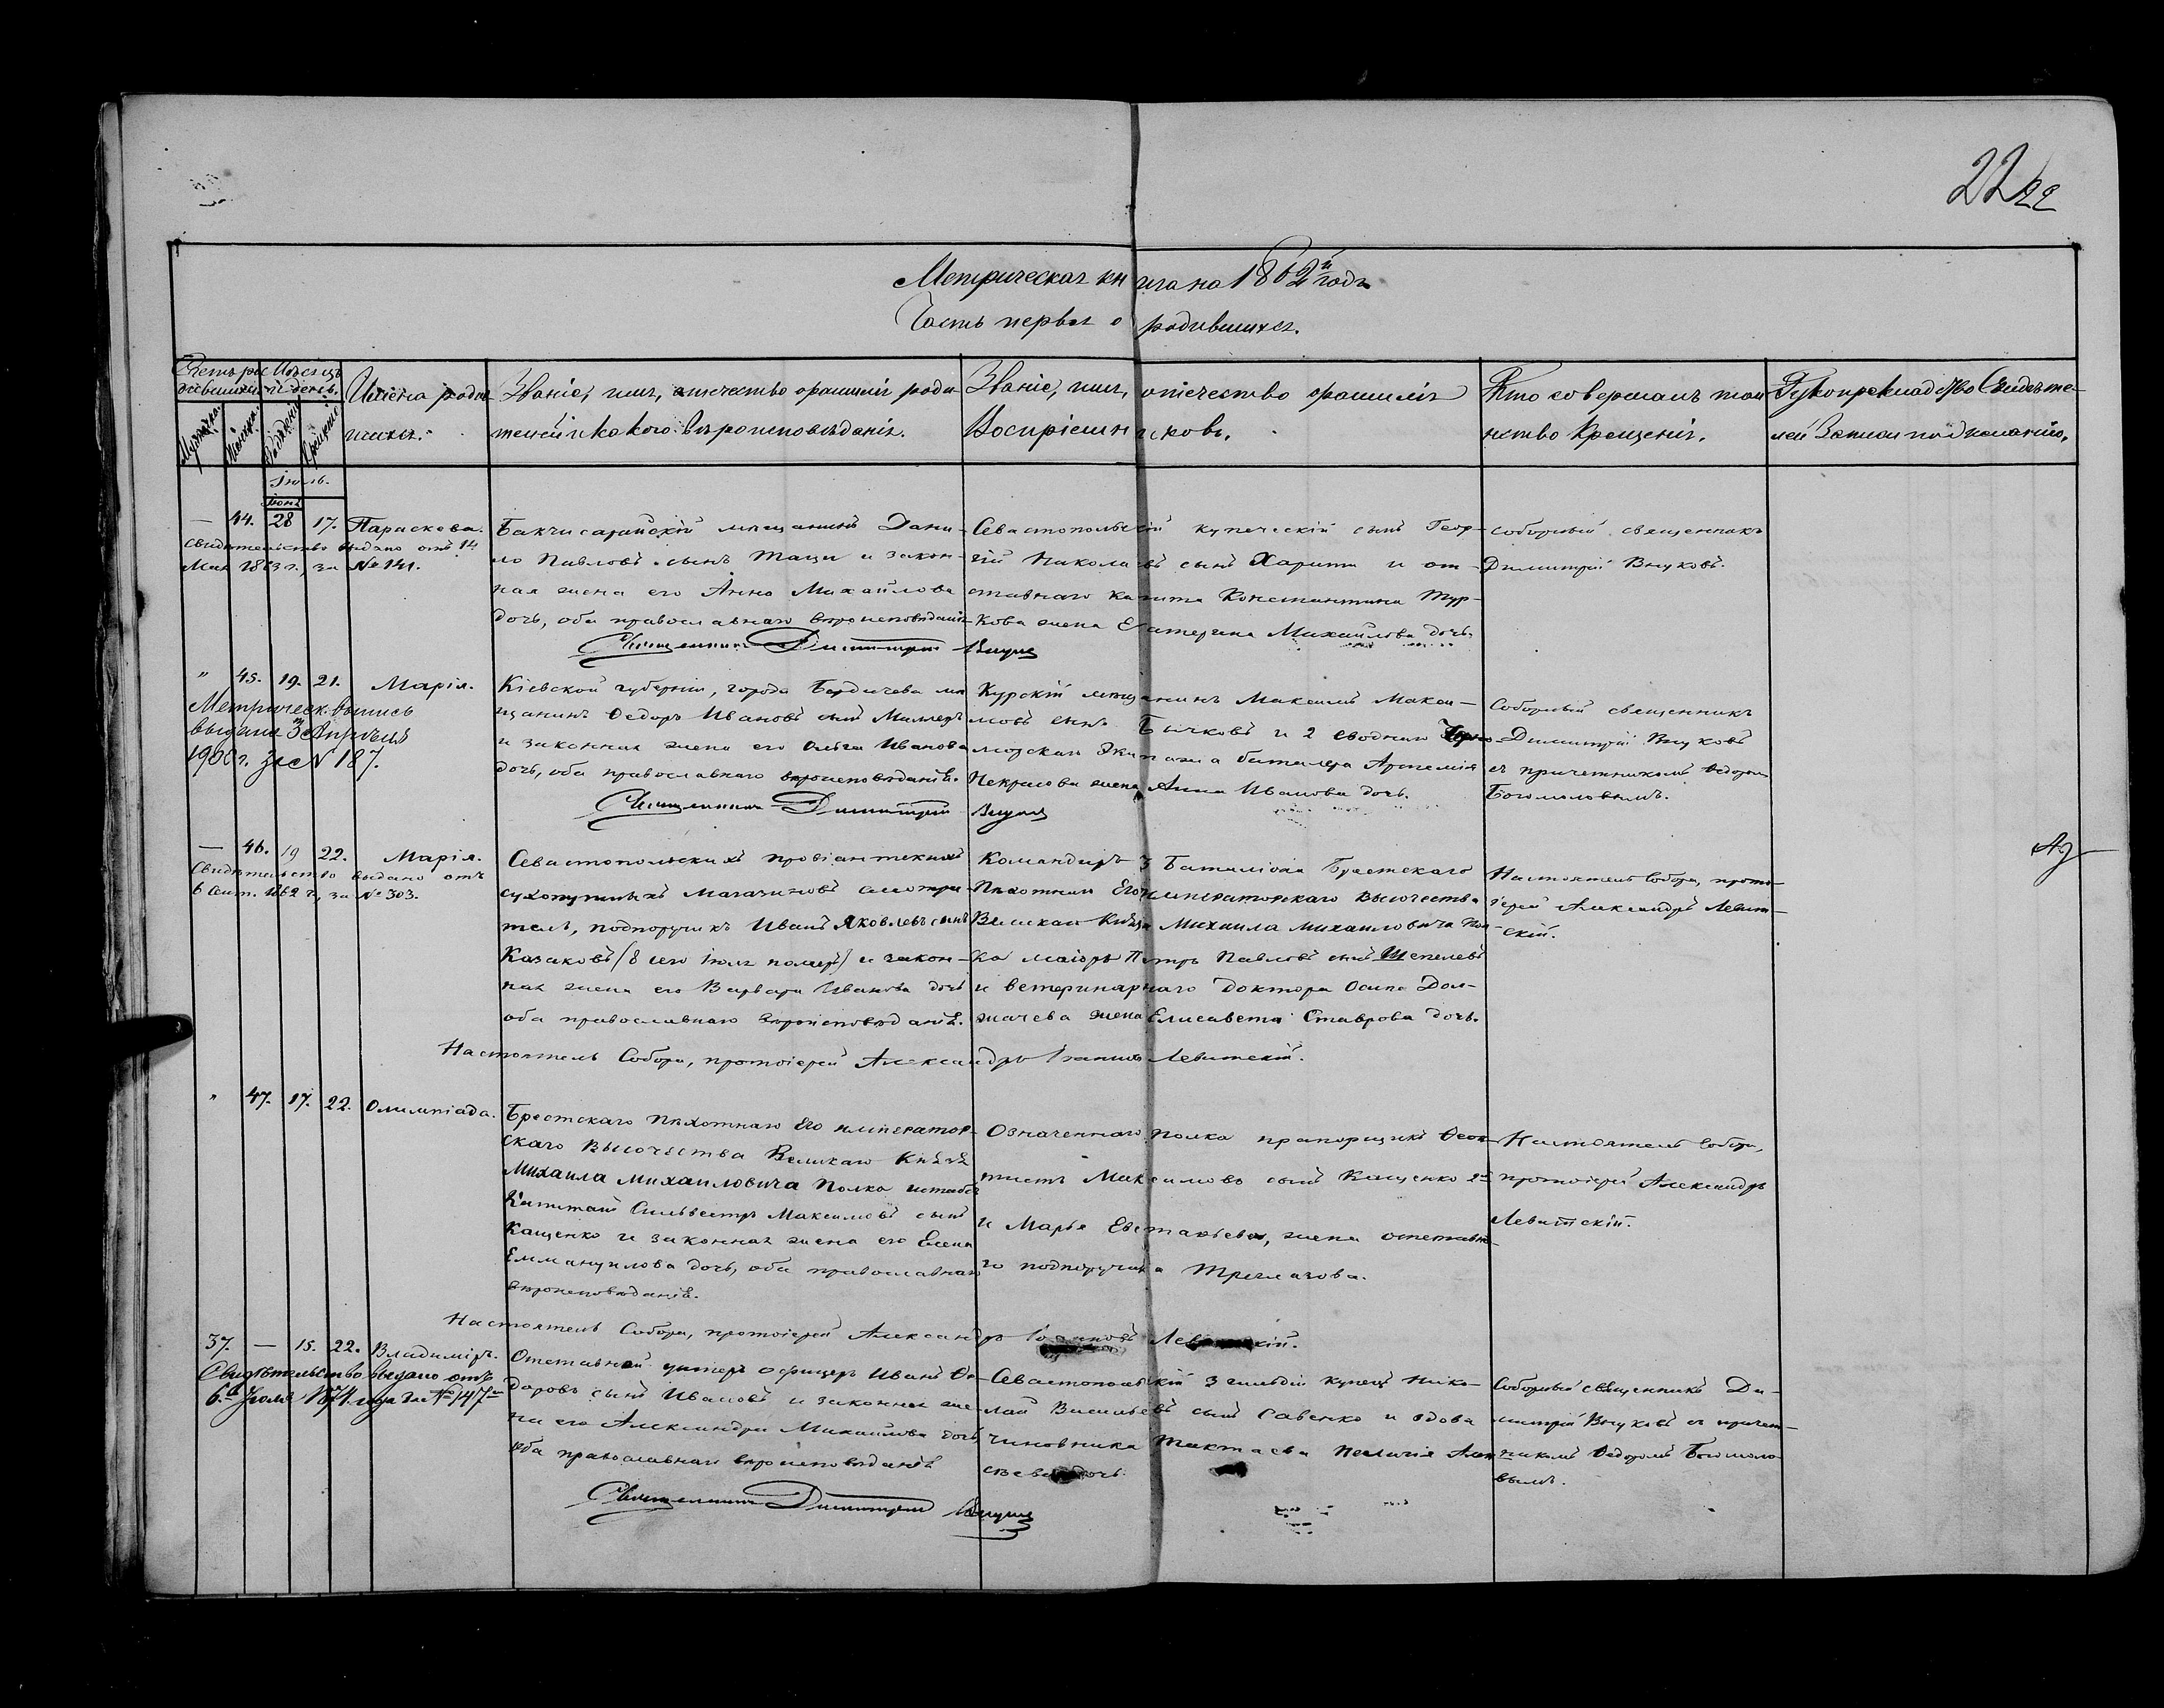 22 22
Метрическая книга на 1862й годъ
Часть первая о родившихся.
Счетъ родившихся
Мужеска.
Женска.
Мѣсяцъ и день.
Рожденія
Крещенія
Имена родившихся.
Званіе, имя, отечество и фамилія родителей и какого вѣроисповѣданія.
Званіе, имя, отечество и фамилія
Воспріемниковъ.
Кто совершалъ таинство Крещенія.
Рукоприкладство Свидѣтелей Записи по желанію.
Іюль.
Іюня
— 44. 28 17. Параскева.
Свидѣтельство выдано отъ 14
Мая 1863 г., за № 141.
Бахчисарайскій мѣщанинъ Дани-
ло Павловъ сынъ Таци и закон-
ная жена его Анна Михайлова
дочь, оба православнаго вѣроисповѣданія
Севастопольскій купеческій сынъ Геор-
гій Николаевъ сынъ Харити и от-
ставнаго Константина Тур-
кова жена Екатерина Михайлова дочь.
соборный священникъ
Димитрій Внуковъ.
Священникъ Димитрій Внуковъ
" 45. 19. 21. Марія.
Метрическ. выпись
выдана 3 Апрѣля
1906 г. за № 187.
Кіевской губерніи, города Бердичева мѣ
щанинъ Ѳедоръ Ивановъ сынъ Миллеръ
и законная жена его Ольга Иванова
дочь, оба православнаго вѣроисповѣданія.
Курскій мѣщанинъ Максимъ Макси-
мовъ сынъ Бычковъ и 2 своднаго Черно-
морскаго Экипажа баталера Артемія
Некрасова жена Анна Иванова дочь.
Соборный священникъ
Димитрій Внуковъ
съ причетникомъ Ѳедоромъ
Богомоловымъ.
Священникъ Димитрій Внуковъ
— 46. 19 22. Марія.
Свидѣтельство выдано отъ
6 Сент. 1862 г., за № 303.
Севастопольскихъ провіантскихъ
сухопутныхъ магазиновъ смотри-
тель, подпоручикъ Иванъ Яковлевъ сынъ
Казаковъ (8 сего Іюля померъ) и закон-
ная жена его Варвара Иванова дочь
оба православнаго вѣроисповѣданія.
Командиръ 3 Баталіона Брестскаго
Пѣхотнаго Его Императорскаго Высочества
Великаго Князя Михаила Михаиловича Пол-
ка маіоръ Петръ Павловъ сынъ Шепелевъ
и ветеринарнаго Доктора Осипа Дол-
жачева жена Елисавета Ставрова дочь.
Настоятель Собора, прото-
іерей Александръ Левит-
скій.
Настоятель Собора, протоіерей Александръ Іоанновъ Левитскій.
" 47. 17. 22. Олимпіада.
Брестскаго Пѣхотнаго Его Император-
скаго Высочества Великаго Князя
Михаила Михаиловича Полка штабсъ
Капитанъ Сильвестръ Максимовъ сынъ
Кащенко и законная жена его Елена
Еммануилова дочь, оба православнаго
вѣроисповѣданія.
Означеннаго Полка прапорщикъ Ѳеок-
тистъ Максимовъ сынъ Кащенко 2й
и Марья Евстафьева, жена отставна-
го подпоручика Треглазова.
Настоятель Собора,
протоіерей Александръ
Левитскій.
Настоятель Собора, протоіерей Александръ Іоанновъ Левитскій.
37. — 15. 22. Владиміръ.
Свидѣтельство выдано отъ
6го Іюля 1871 года за № 147м
Отставной унтеръ офицеръ Иванъ Ѳе-
доровъ сынъ Ивановъ и законная же-
на его Александра Михайлова дочь,
оба православнаго вѣроисповѣданія
Севастопольскій 3 гильдіи купецъ Нико-
лай Васильевъ сынъ Савенко и вдова
чиновника Пелагія Алек
сѣева дочь.
Соборный священникъ Ди-
митрій Внуковъ съ причет-
никомъ Ѳедоромъ Богомоло-
вымъ.
Священникъ Димитрій Внуковъ